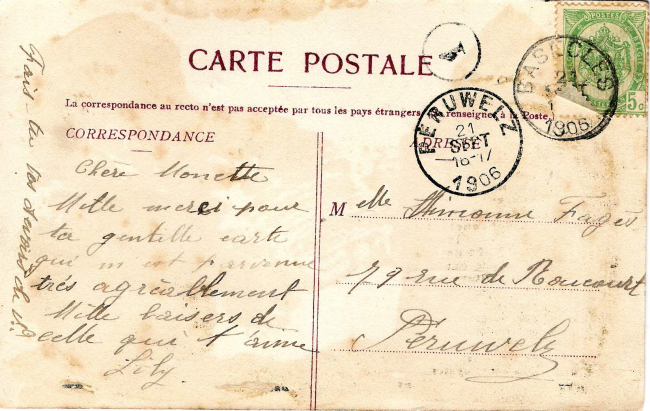 CARTE POSTALE
La correspondance au recto n'est pas acceptée par tous les pays étrangers (Se renseigner à la Poste.)
CORRESPONDANCE
ADRESSE
Chère Monette
Mille merci pour
ta gentille carte
qui m'est parvenue
très agréablement
Mille baisers de
celle qui t'aime
Lily
Fais-tu tes devoirs de
Melle Simonne Fagès
79 rue de Roucourt
Péruwelz
1
PERUWELZ
21
SEPT
16-17
1906
BASECLES
21
1906
5c